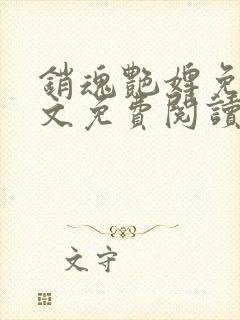 銷魂艷婢免
文免費閱讀
文守